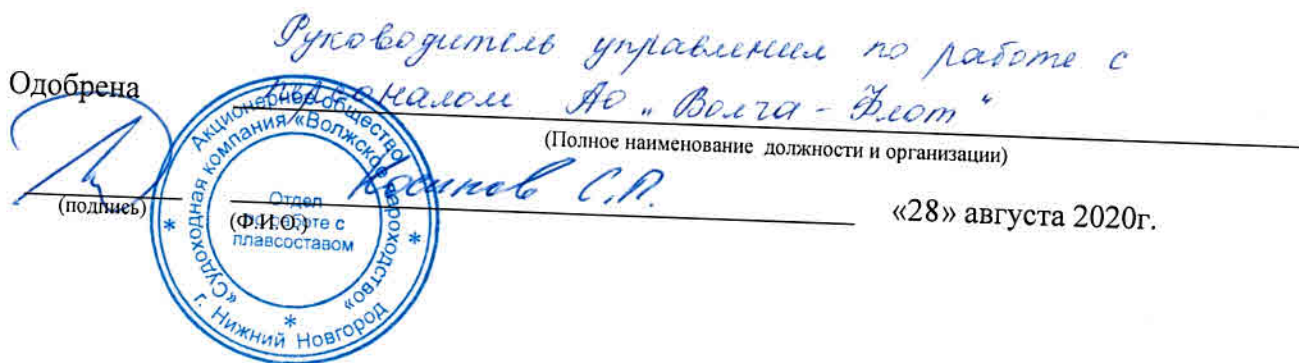 Руководитель управления по работе с
Одобрена
персоналом АО „Волга - Флот“
(Полное наименование должности и организации)
С.П.
(подпись)
(Ф.И.О.)
«28» августа 2020г.
Акционерное общество
«Судоходная компания «Волжское пароходство»
г. Нижний Новгород
Отдел
по работе с
плавсоставом